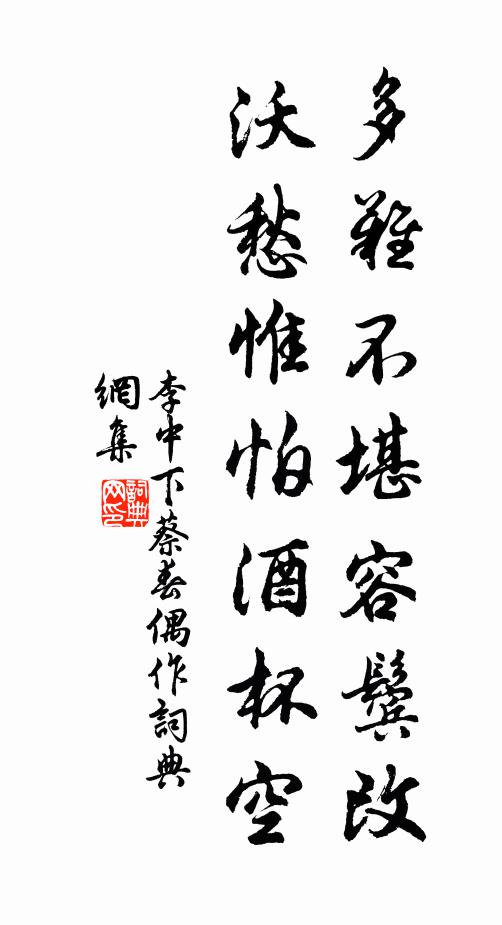 多難不堪容鬢改
沃愁惟怕酒杯空
李中下蔡春偶作詞典
網集
詞典
网印